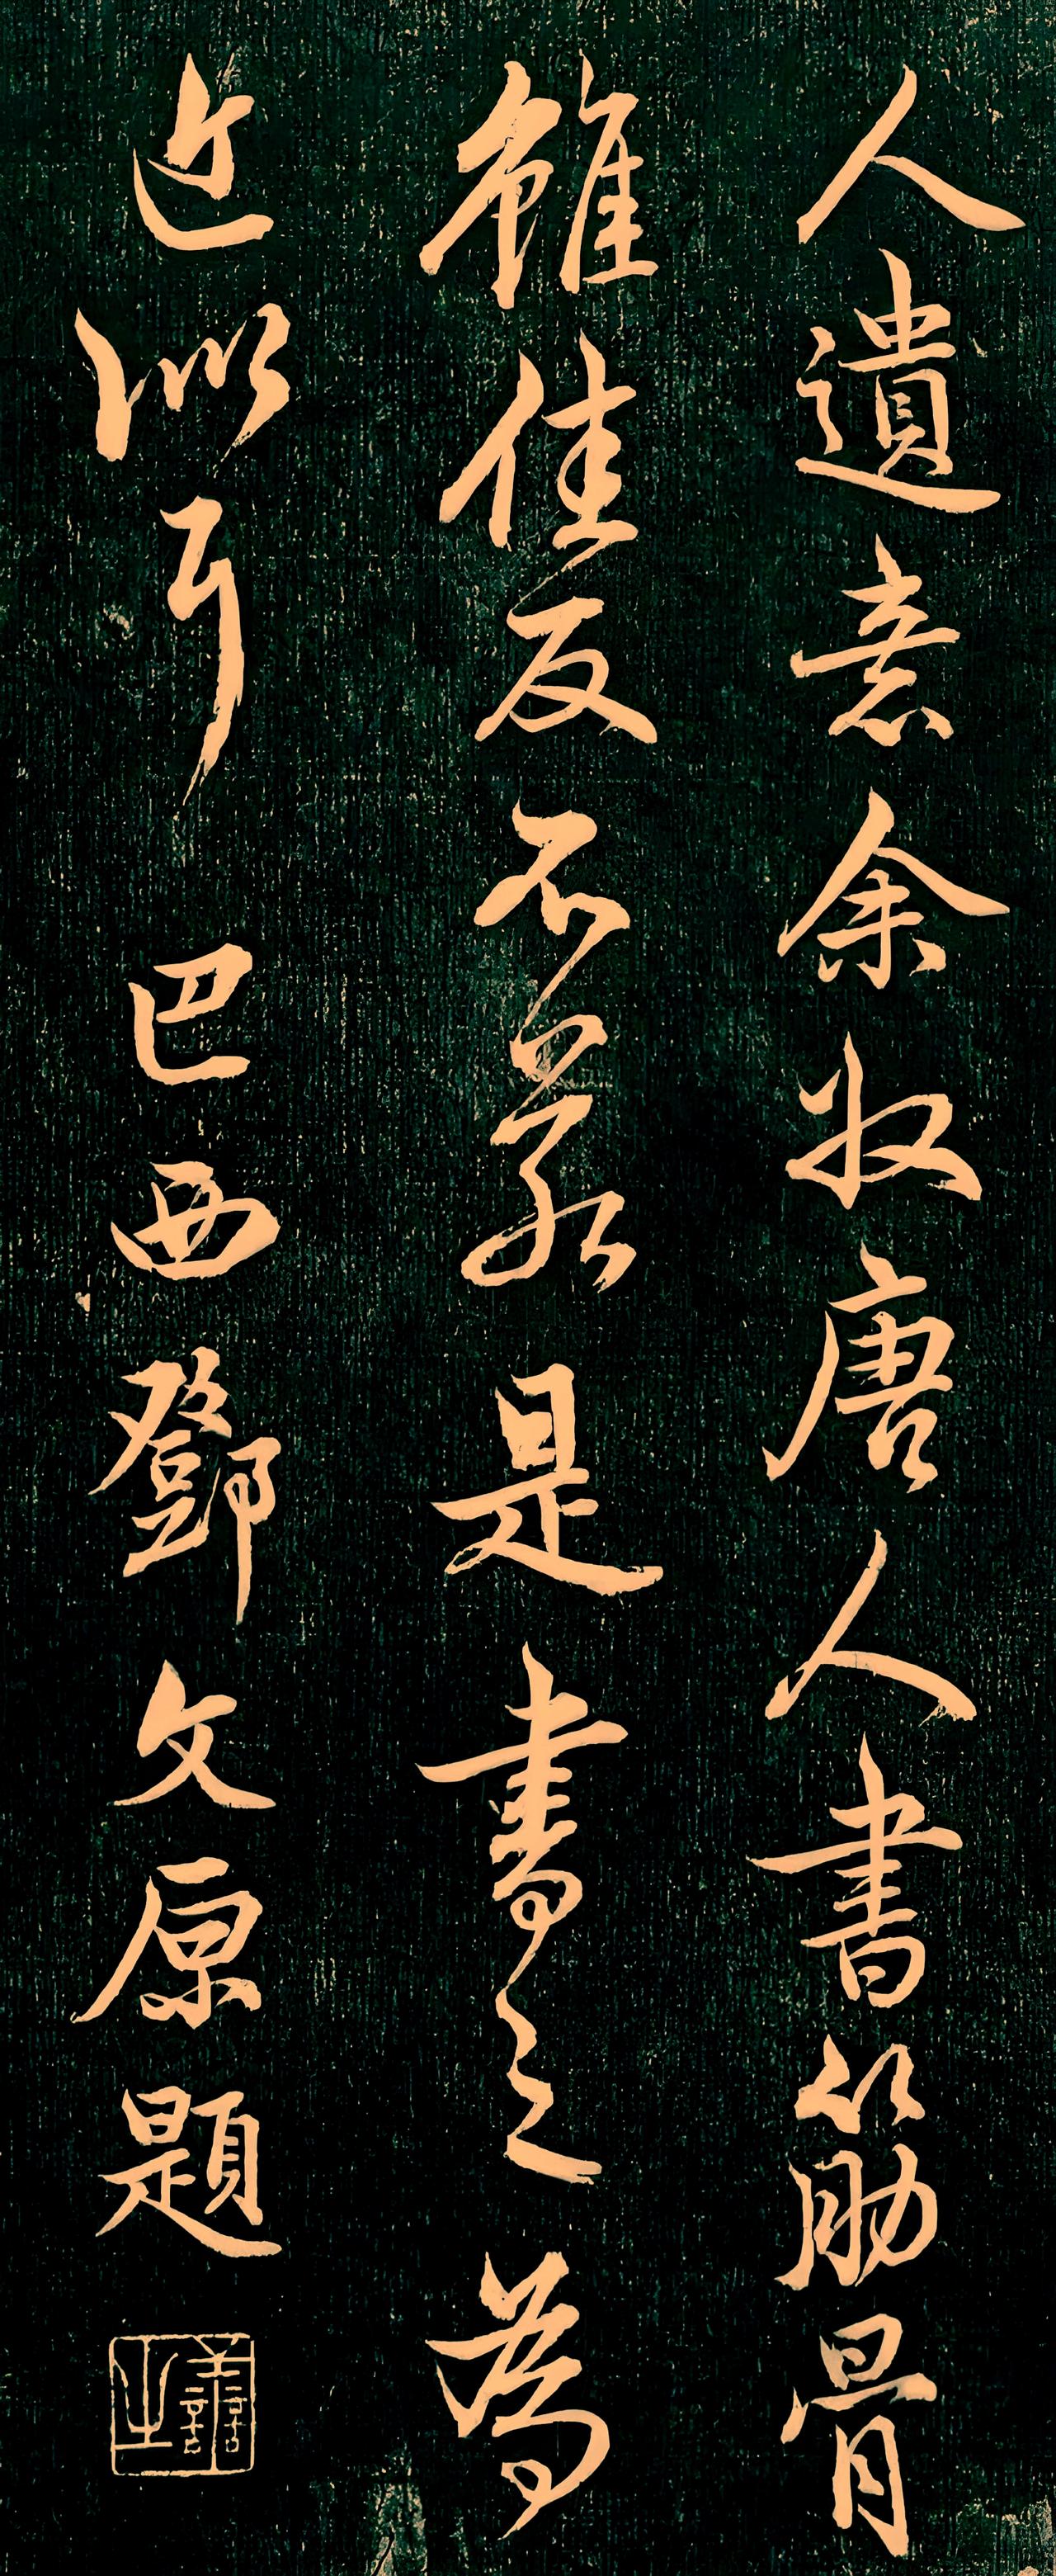 人遺意余收唐人書筋骨
雖佳反不若是書之為
近似耳 巴西鄧文原題
善之